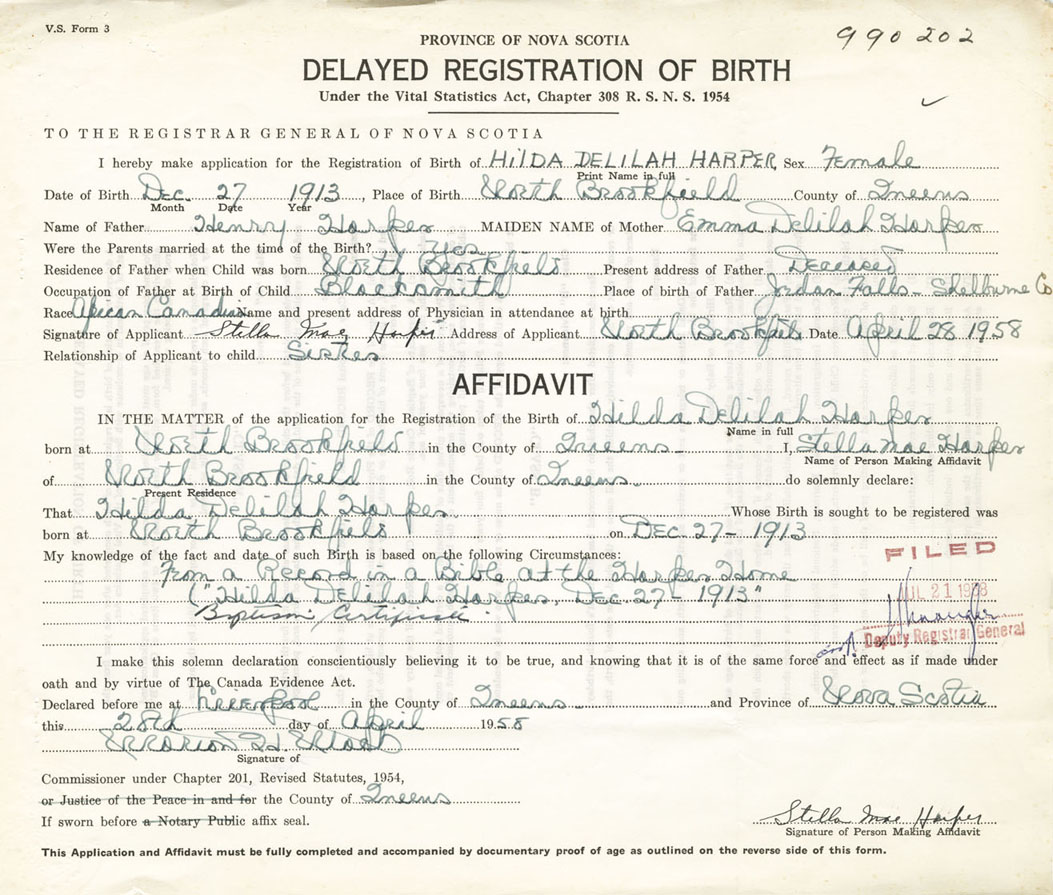 V.S. Form 3
990202
PROVINCE OF NOVA SCOTIA
DELAYED REGISTRATION OF BIRTH
Under the Vital Statistics Act, Chapter 308 R. S. N. S. 1954
TO THE REGISTRAR GENERAL OF NOVA SCOTIA
I hereby make application for the Registration of Birth of HILDA DELILAH HARPER Sex Female
Print Name in full
Date of Birth Dec. 27 1913, Place of Birth North Brookfield County of Queens
Month Date Year
Name of Father Henry Harper MAIDEN NAME of Mother Emma Delilah Harper
Were the Parents married at the time of the Birth? Yes
Residence of Father when Child was born North Brookfield Present address of Father Deceased
Occupation of Father at Birth of Child Blacksmith Place of birth of Father Jordan Falls - Shelburne Co
Race African Canadian Name and present address of Physician in attendance at birth
Signature of Applicant Stella Mae Harper Address of Applicant North Brookfield Date April 28 1958
Relationship of Applicant to child Sister
AFFIDAVIT
IN THE MATTER of the application for the Registration of the Birth of Hilda Delilah Harper
Name in full
born at North Brookfield in the County of Queens I, Stella Mae Harper
Name of Person Making Affidavit
of North Brookfield in the County of Queens do solemnly declare:
Present Residence
That Hilda Delilah Harper Whose Birth is sought to be registered was
born at North Brookfield on DEC. 27 - 1913
My knowledge of the fact and date of such Birth is based on the following Circumstances:
From a Record in a Bible at the Harper Home
("Hilda Delilah Harper, Dec. 27 - 1913"
Baptism Certificate
FILED
JUL 21 1958
Deputy Registrar General
I make this solemn declaration conscientiously believing it to be true, and knowing that it is of the same force and effect as if made under
oath and by virtue of The Canada Evidence Act.
Declared before me at Liverpool in the County of Queens and Province of Nova Scotia
this 28th day of April 1958
Marion H.
Signature of
Commissioner under Chapter 201, Revised Statutes, 1954,
or Justice of the Peace in and for the County of Queens
If sworn before a Notary Public affix seal.
Stella Mae Harper
Signature of Person Making Affidavit
This Application and Affidavit must be fully completed and accompanied by documentary proof of age as outlined on the reverse side of this form.